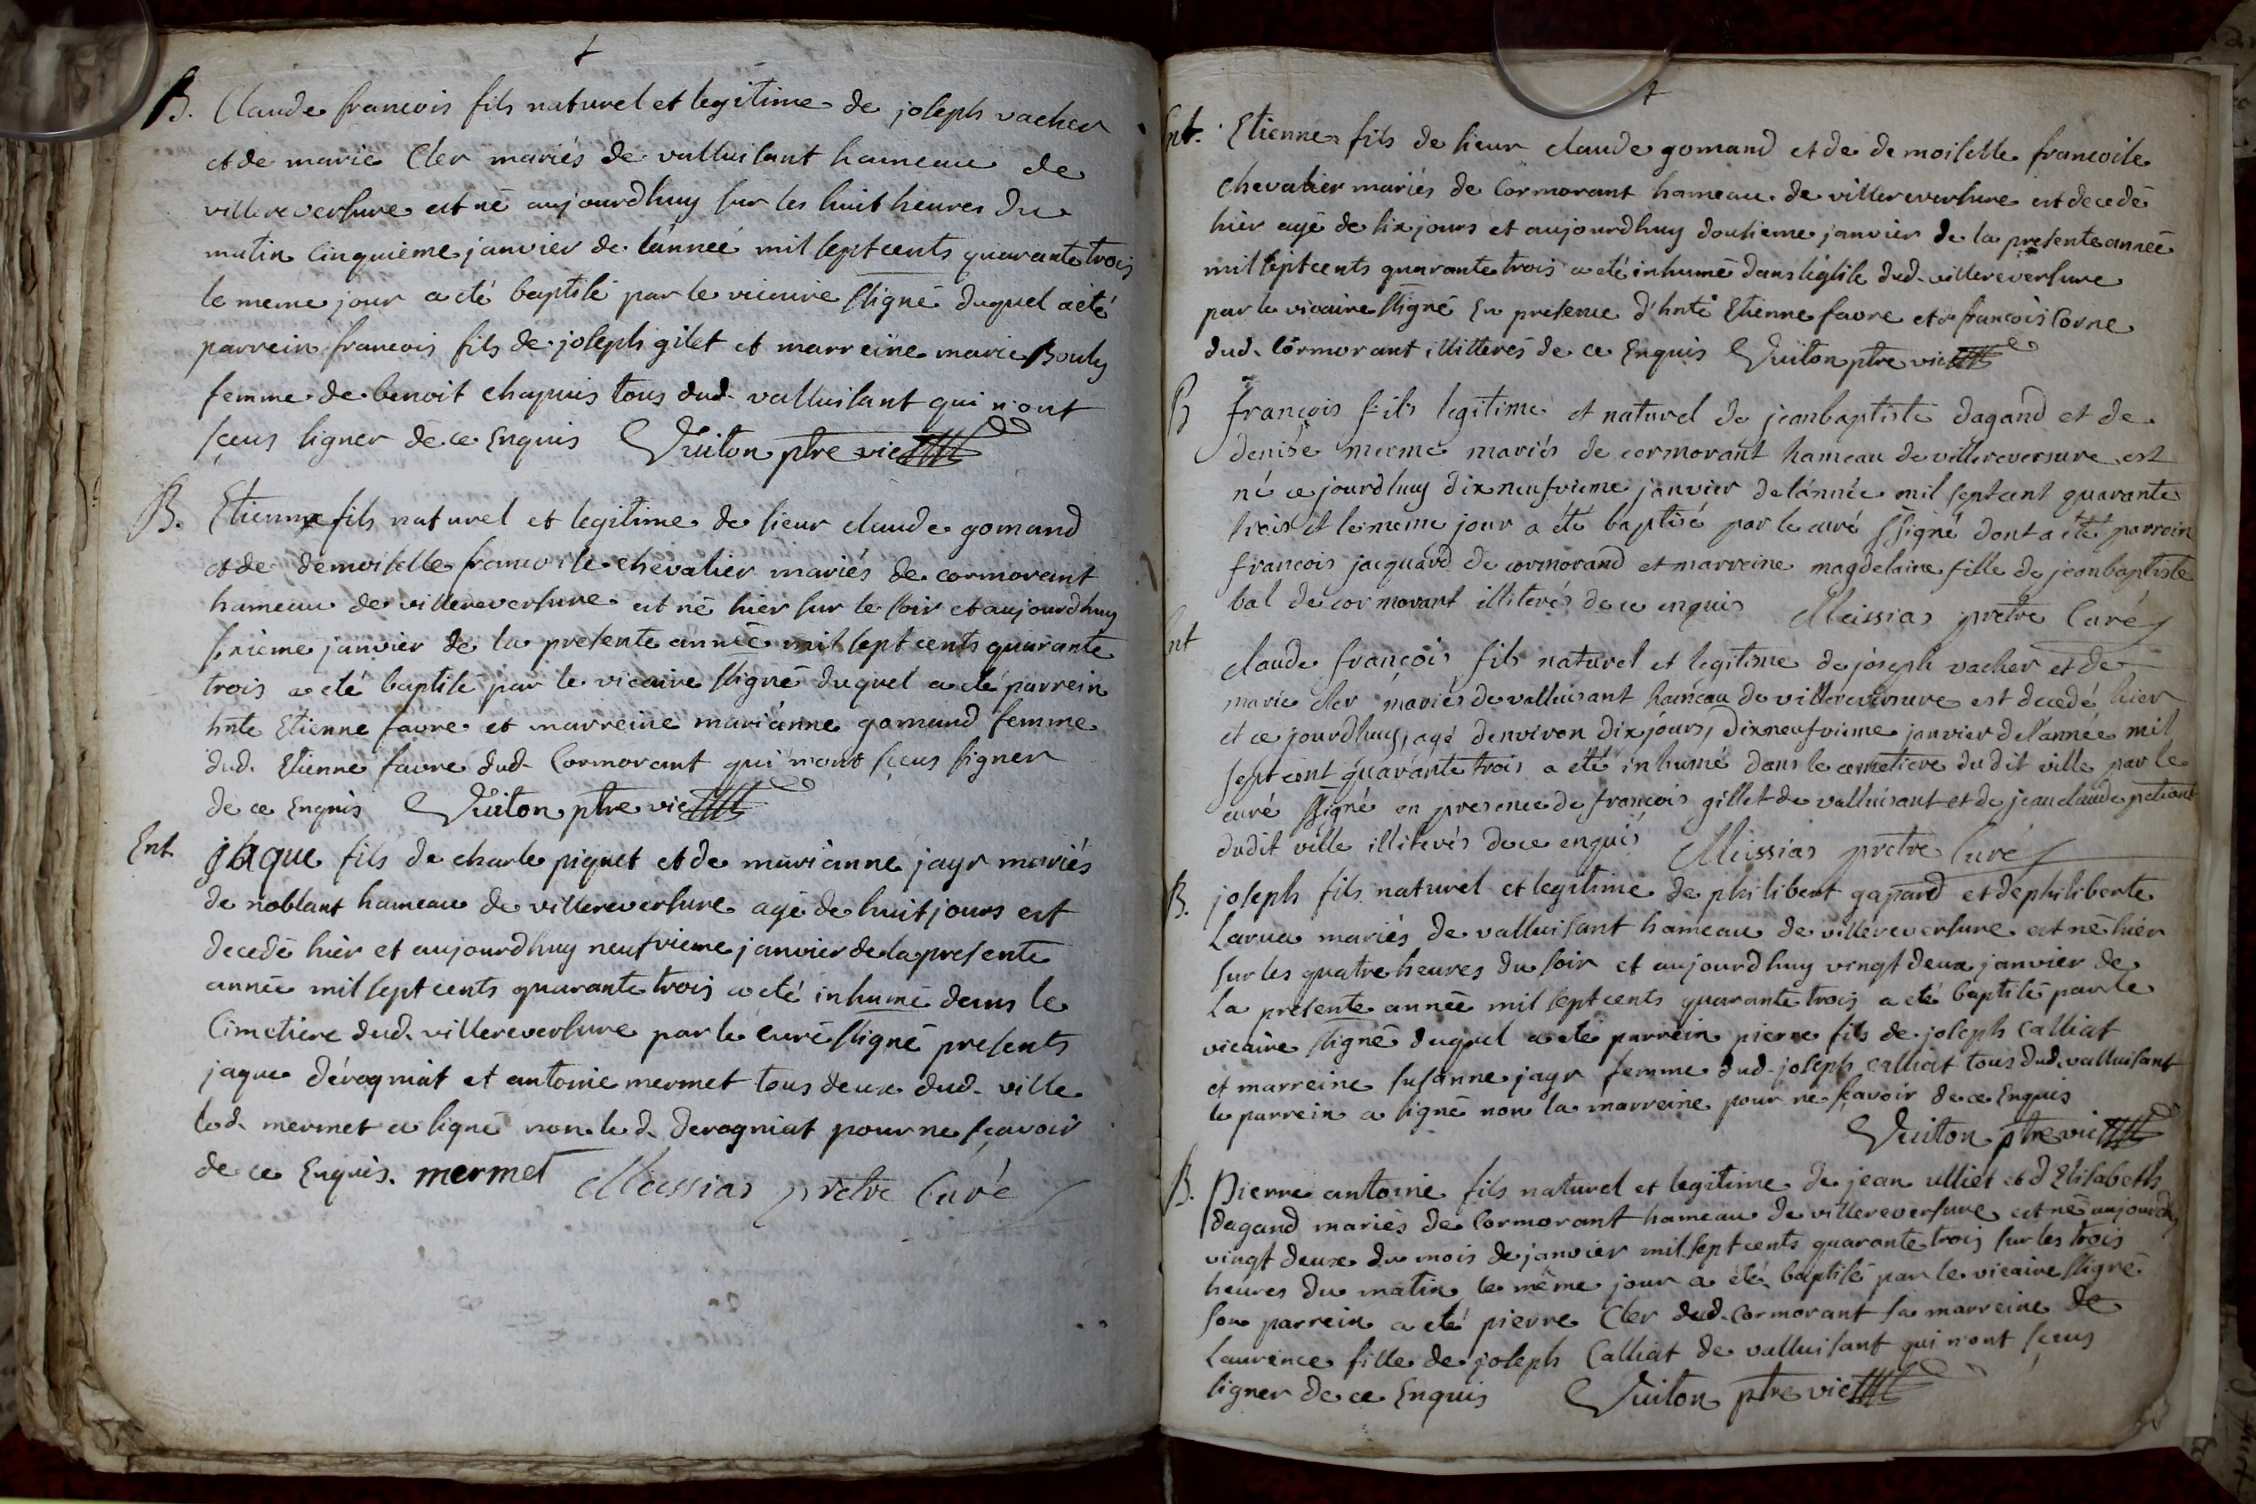 B. Claude francois fils naturel et legitime de joseph vacher
et de marie Cler mariés de valluisant hameau de
villereversure est né aujourdhuy sur les huit heures du
matin cinquième janvier de l'année mil sept cents quarante trois
le meme jour a été baptisé par le vicaire ssigné duquel a été
parrein francois fils de joseph gilet et marreine marie Bouly
femme de benoit chapuis tous dud. valluisant qui n'ont
sçeus signer de ce Enquis Vuiton ptre vic
B. Etienne fils naturel et legitime de sieur claude gomand
et de demoiselle francoise chevalier mariés de cormorant
hameau de villereversure est né hier sur le soir et aujourdhuy
sixieme janvier de la presente année mil sept cents quarante
trois a été baptisé par le vicaire ssigné duquel a été parrein
hnte Etienne favre et marreine marianne gomand femme
dud. Etienne favre dud. Cormorant qui n'ont sçeus signer
de ce Enquis Vuiton ptre vic
Ent jaque fils de charle piquet et de marianne jayr mariés
de noblant hameau de villereversure agé de huit jours est
decedé hier et aujourdhuy neufvieme janvier de la presente
année mil sept cents quarante trois a été inhumé dans le
Cimetiere dud. villereversure par le curé ssigné presents
jaque dérogniat et antoine mermet tous deux dud. ville
led. mermet a signé non led. derogniat pour ne sçavoir
de ce Enquis. mermet Messias pretre Curé
Ent. Etienne fils de sieur claude gomand et de demoiselle francoise
chevalier mariés de Cormorant hameau de villereversure est decedé
hier agé de six jours et aujourdhuy douzieme janvier de la presente année
mil sept cents quarante trois a été inhumé dans l'église dud. villereversure
par le vicaire ssigné En presence d'hnte Etienne favre et de francois Corne
dud. Cormorant illitterés de ce Enquis Vuiton ptre vic
B françois fils legitime et naturel de jeanbaptiste dagand et de
denise merme mariés de cormorant hameau de villereversure est
né ce jourdhuy dixneufvieme janvier de l'année mil sept cent quarante
trois et le meme jour a été baptisé par le curé ssigné dont a été parrein
françois jacquard de cormorand et marreine magdelaine fille de jeanbaptiste
bal de cormorant illiterés de ce enquis Messias pretre Curé
Ent claude françois fils naturel et legitime de joseph vacher et de
marie cler mariés de valluisant hameau de villereversure est decedé hier
et ce jourdhuy, agé denviron dix jours, dixneufvieme janvier de l'année mil
sept cent quarante trois a été inhumé dans le cemetiere dudit ville par le
curé ssigné en presence de françois gillet de valluisant et de jean claude
dudit ville illiterés de ce enquis Messias pretre Curé
B. joseph fils naturel et legitime de philibert gapard et de philiberte
Larua mariés de valluisant hameau de villereversure est né hier
sur les quatre heures du soir et aujourdhuy vingt deux janvier de
la presente année mil sept cents quarante trois a été baptisé par le
vicaire ssigné duquel a été parrein pierre fils de joseph Calliat
et marreine susanne jayr femme dud. joseph calliat tous dud. valluisant
le parrein a signé non la marreine pour ne sçavoir de ce Enquis
Vuiton ptre vic
B. Pierre antoine fils naturel et legitime de jean ulliet et d'Elisabeth
dagand mariés de Cormorant hameau de villereversure est né aujourdhuy
vingt deux du mois de janvier mil sept cents quarante trois sur les trois
heures du matin le même jour a été baptisé par le vicaire ssigné
son parrein a été pierre Cler dud. Cormorant sa marreine
Laurence fille de joseph Calliat de valluisant qui n'ont sçeus
signer de ce Enquis Vuiton ptre vic